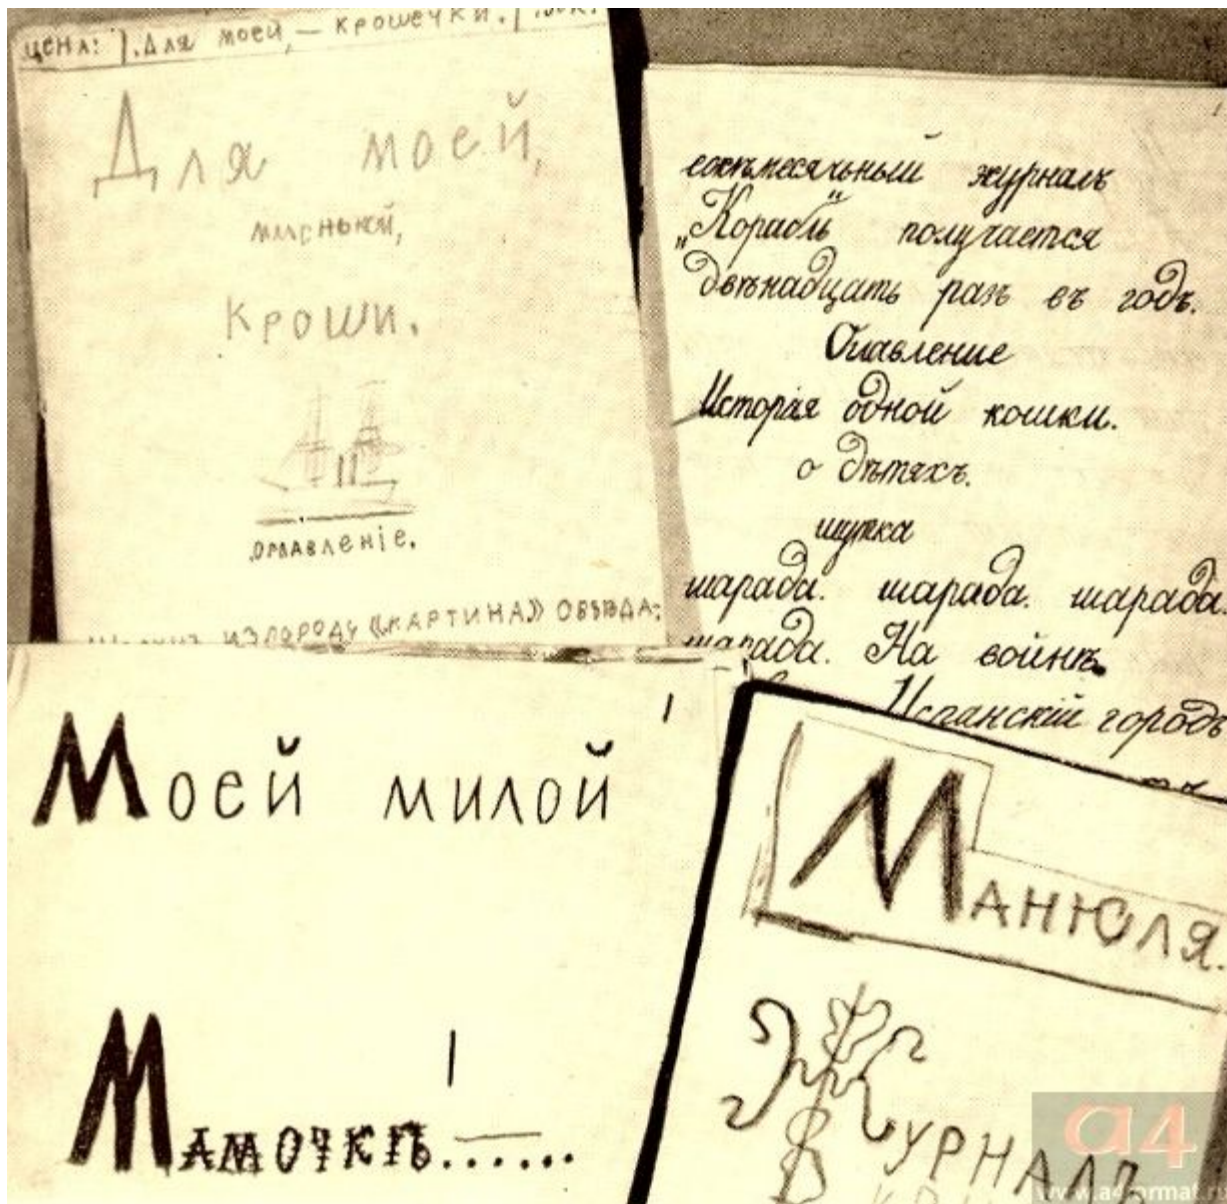 ЦЕНА: 1. Для моей, — крошечки.
Для моей,
маленькой,
кроши.
оглавленіе.
ИЗЛОРОДУ «КАРТИНА» ОБѢДА:
ежемесячный журналъ
„Корабль“ получается
двѣнадцать разъ въ годъ.
Оглавление
Исторія одной кошки.
о дѣтяхъ.
шутка
шарада. шарада. шарада
шарада. На войнѣ.
Испанскій городъ
Моей милой
Мамочкѣ......
Манюля.
Журналъ
a4
www.a4format.ru